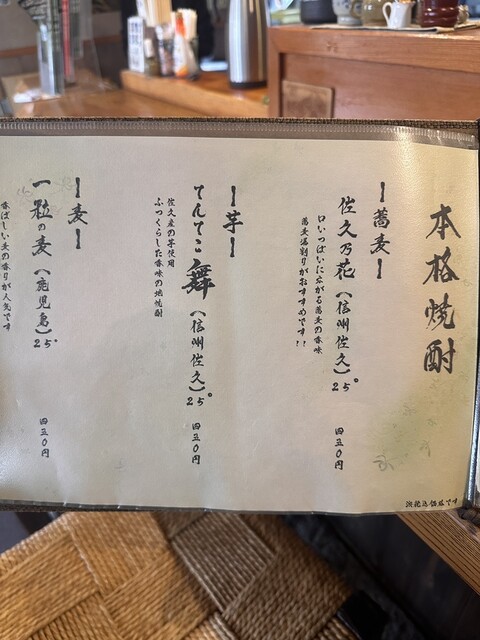 本格焼酎
ー蕎麦ー
佐久乃花（信州佐久）25° 四五〇円
口いっぱいに広がる蕎麦の香味
蕎麦湯割りがおすすめです!!
ー芋ー
てんてこ舞（信州佐久）25° 四五〇円
佐久産の芋使用
ふっくらした香味の焼酎
ー麦ー
一粒の麦（鹿児島）25° 四五〇円
香ばしい麦の香りが人気です
税込価格です